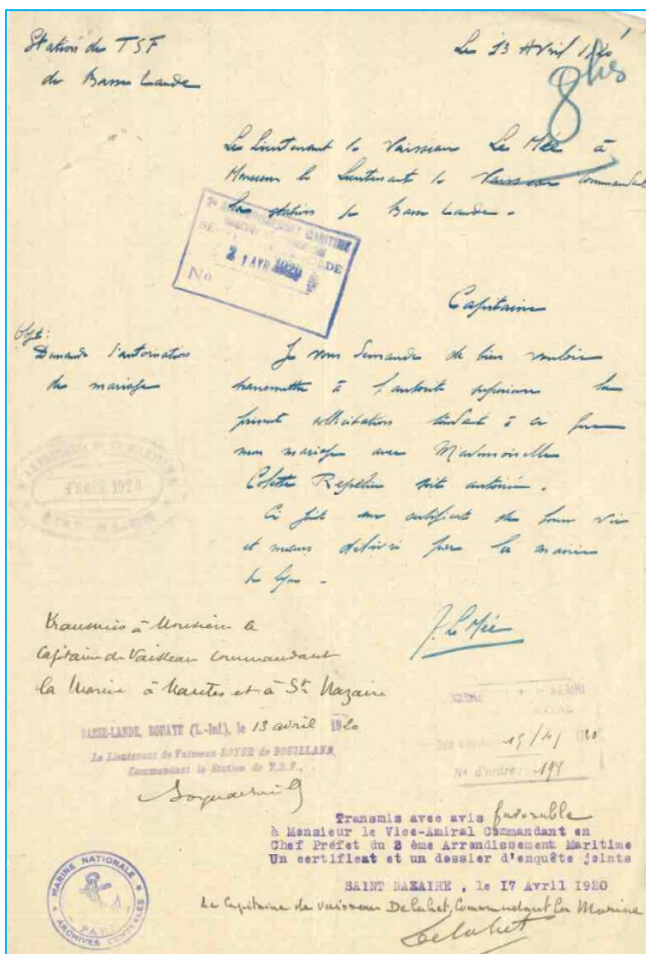 Station de TSF
de Basse Lande
Le 13 Avril 1920
8 bis
Le Lieutenant de Vaisseau Le Mée à
Monsieur le Lieutenant de Vaisseau commandant
la station de Basse Lande.
2e ARRONDISSEMENT MARITIME
21 AVR 1920
No
Capitaine
Objet:
Demande d'autorisation
de mariage
Je vous demande de bien vouloir
transmettre à l'autorité supérieure la
présente sollicitation tendant à ce que
mon mariage avec Mademoiselle
Colette Repelin soit autorisé.
Ci joint un certificat de bonne vie
et mœurs délivré par la mairie
de Lyon.
J. Le Mée
Transmis à Monsieur le
Capitaine de Vaisseau Commandant
la Marine à Nantes et à St Nazaire
BASSE-LANDE, BOUAYE (L.-Inf.), le 13 avril 1920
Le Lieutenant de Vaisseau BOYER de BOUILLANE
Commandant la Station de T.S.F.,
15/4/1920
N° d'ordre: 198
Transmis avec avis favorable
à Monsieur le Vice-Amiral Commandant en
Chef Préfet du 2 ème Arrondissement Maritime
Un certificat et un dossier d'enquête joints
SAINT NAZAIRE, le 17 Avril 1920
Le Capitaine de Vaisseau Delahet, Commandant la Marine
Delahet
MARINE NATIONALE
PARIS
ARCHIVES CENTRALES